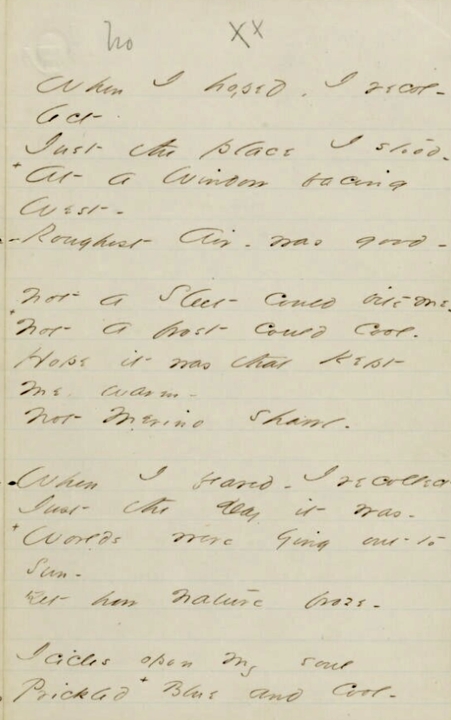 No XX
When I hoped, I recol-
lect
Just the place I stood -
+ At a Window facing
West -
- Roughest Air - was good -
Not a Sleet could bite me -
+ Not a frost could cool -
Hope it was that kept
me warm -
Not Merino Shawl -
When I feared - I recollect
Just the Day it was -
+ Worlds were lying out to
Sun -
Yet how Nature froze -
Icicles upon my soul
Prickled + Blue and cool -